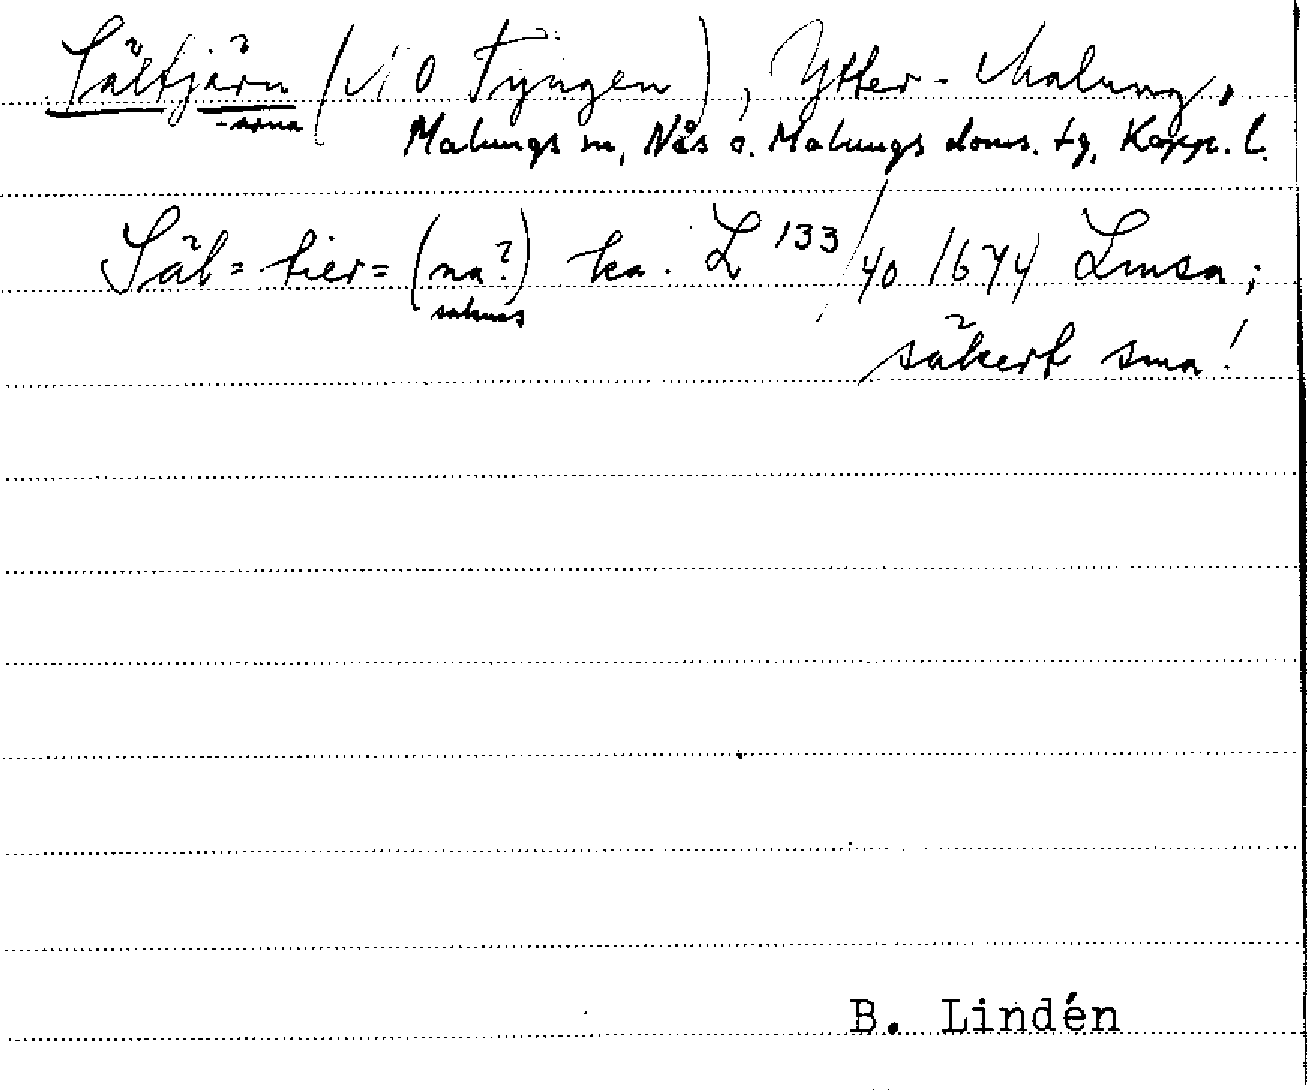 Sältjärn (NO Tyngen), Ytter-Malung,
-arna
Malungs sn, Nås o. Malungs doms. tg, Kopp. l.
Säl= tier= (na?) ka. L 133/40 1674 Lmsa;
saknas
säkert sma!
B. Lindén